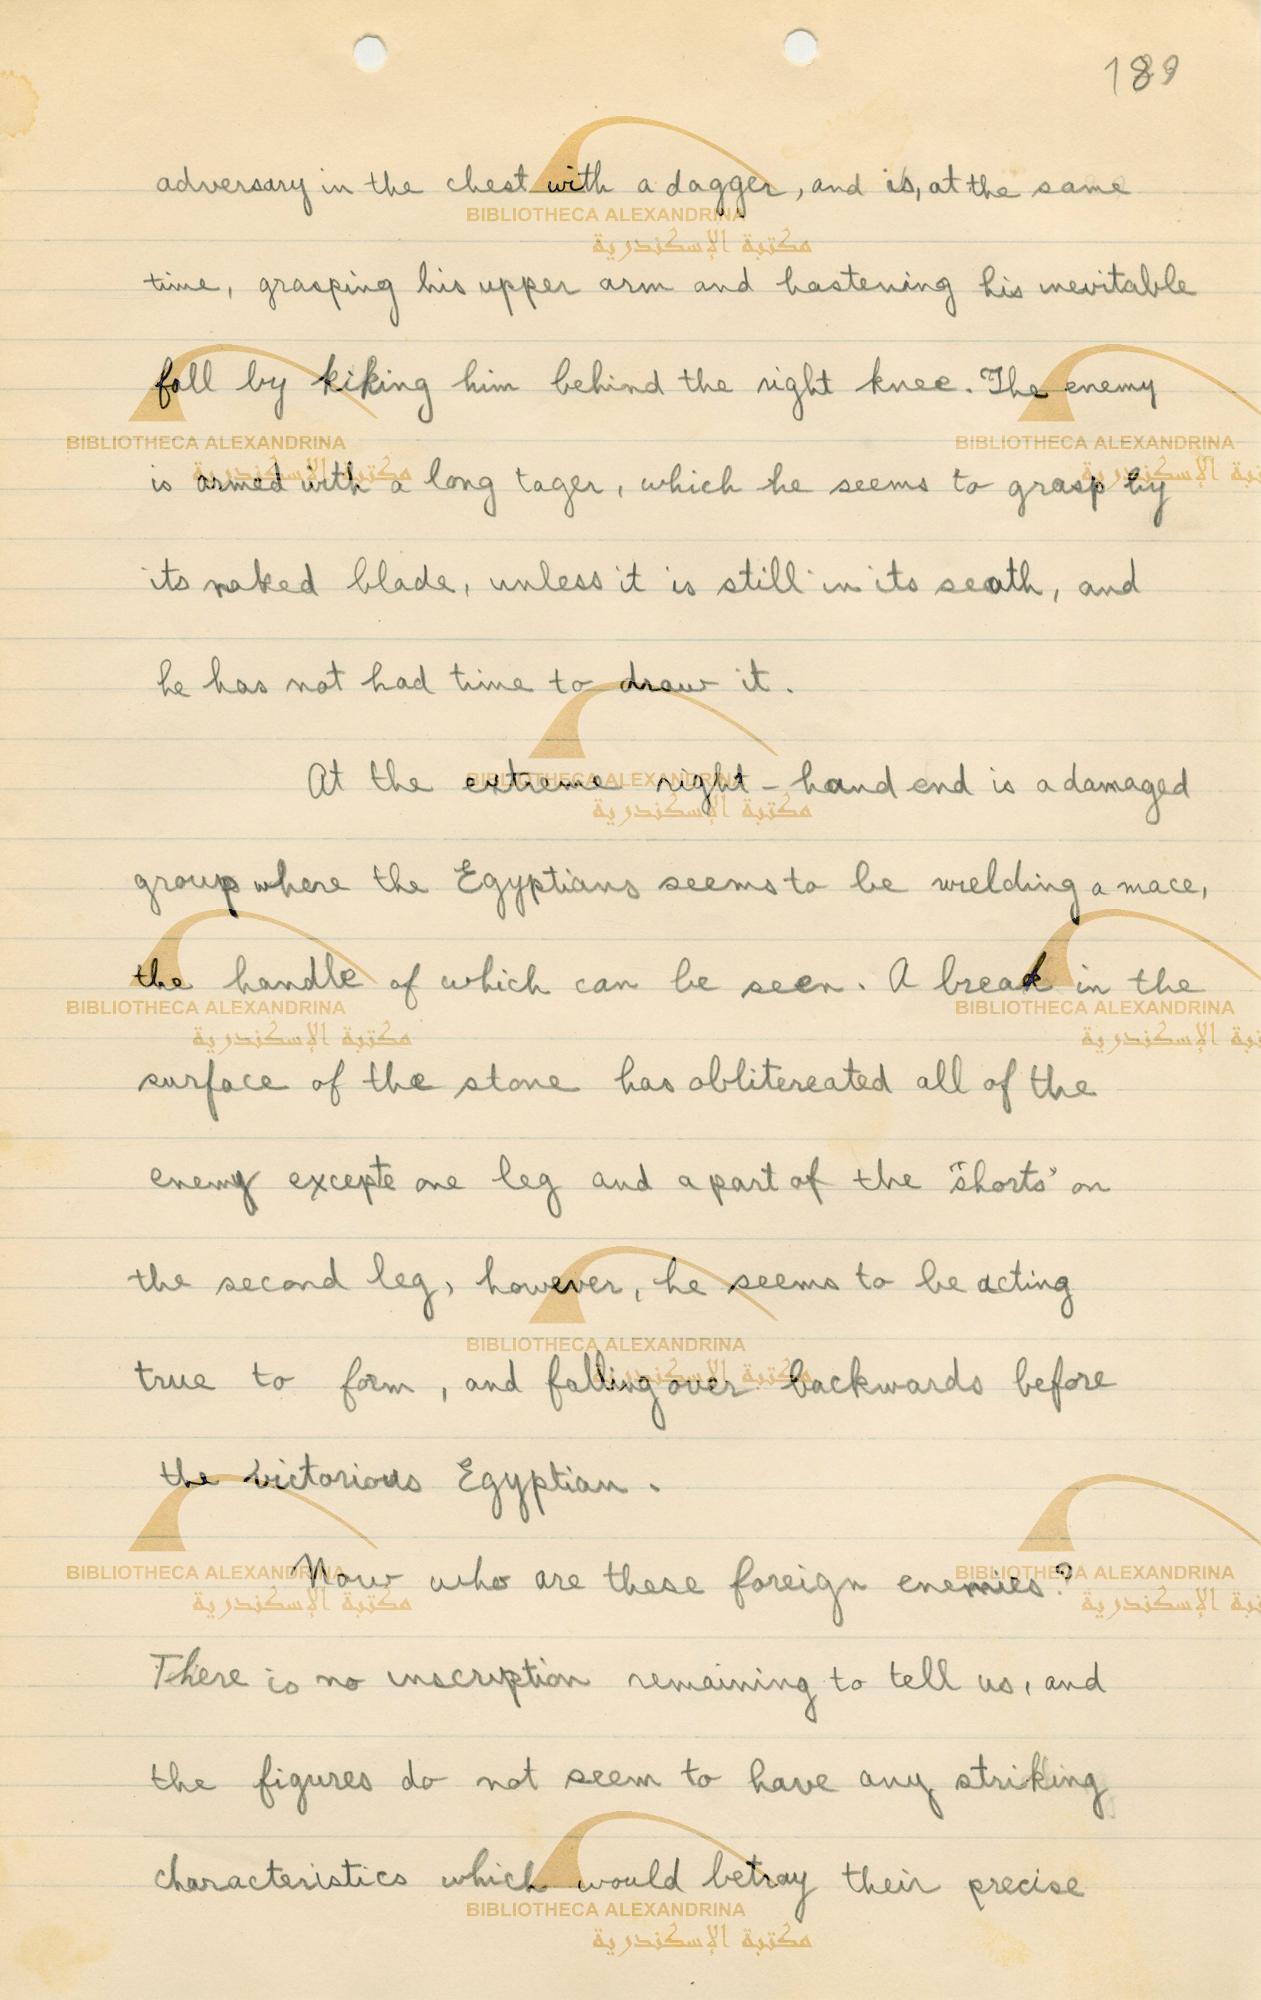 189
adversary in the chest with a dagger, and is, at the same
time, grasping his upper arm and hastening his inevitable
fall by kiking him behind the right knee. The enemy
is armed with a long tager, which he seems to grasp by
its naked blade, unless it is still in its seath, and
he has not had time to draw it.
At the extreme right-hand end is a damaged
group where the Egyptians seems to be wielding a mace,
the handle of which can be seen. A break in the
surface of the stone has oblitereated all of the
enemy excepte one leg and a part of the "shorts" on
the second leg, however, he seems to be acting
true to form, and falling over backwards before
the victorious Egyptian.
Now who are these foreign enemies?
There is no inscription remaining to tell us, and
the figures do not seem to have any striking
characteristics which would betray their precise
BIBLIOTHECA ALEXANDRINA
مكتبة الإسكندرية